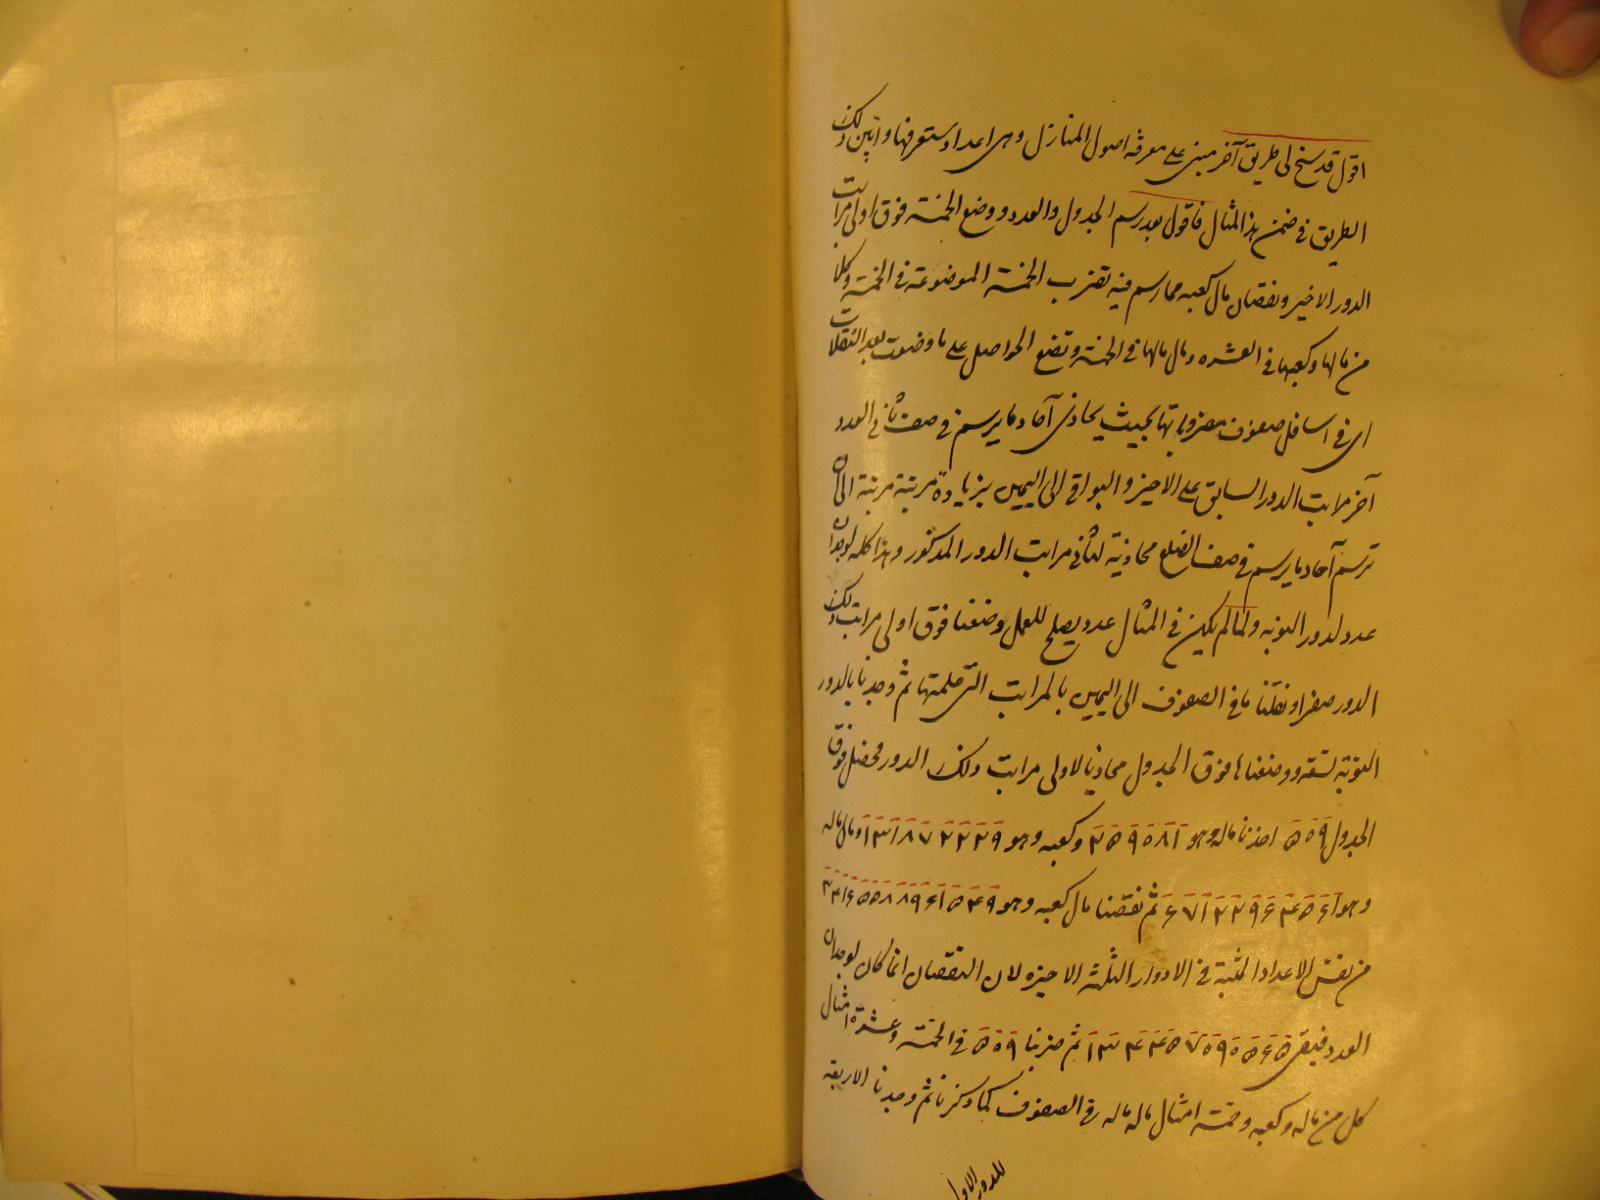 اقول قد سنح لى طريق آخر مبنى على معرفة اصول المنازل وهى اعداد ستعرفها وابين ذلك
الطريق فى ضمن هذا المثال فاقول بعد رسم الجدول والعدد ووضع الخمسة فوق اولى مراتب
الدور الاخير ونقصان مال كعبه مما رسم فيه تضرب الخمسة الموضوعة فى الخمسة وكلا
من مالها وكعبها فى العشره ومال مالها فى الخمسة وتضع الحواصل على ما وضعت بعد النقلات
اى فى اسافل صفوف مضروباتها بحيث يحاذى آحاد ما يرسم فى صف ثانى العدد
آخر مراتب الدور السابق على الاخير والبواقى الى اليمين بزيادة مرتبة مرتبة الى ان
ترسم آحاد ما يرسم فى صف الضلع محاذية لثانى مراتب الدور المذكور وهذا كله لوجدان
عدد لدور النوبه ولما لم يكن فى المثال عدد يصلح للعمل وضعنا فوق اولى مراتب ذلك
الدور صفرا ونقلنا ما فى الصفوف الى اليمين بالمراتب التى علمتها ثم وجدنا بالدور
النوبة تسعة ووضعناها فوق الجدول محاذيا لاولى مراتب ذلك الدور فحصل فوق
الجدول ٥٠٩ اخذنا ماله وهو ٢٥٩٠٨١ وكعبه وهو ١٣١٨٧٢٢٢٩ ومال ماله
وهو ٦٧١٢٢٩٦٤٥٦١ ثم نقصنا مال كعبه وهو ٣٤١٦٥٥٨٨٩٦١٥٤٩
من نفس الاعداد المثبتة فى الادوار الثلثة الاخيره لان النقصان انما كان لوجدان
العدد فبقى ١٣٤٤٥٧٠٩٠٥٦٥ ثم ضربنا ٥٠٩ فى الخمسة وعشرة امثال
كل من ماله وكعبه وخمسة امثال مال ماله فى الصفوف كما ذكرنا ثم وجدنا الاربعة
للدور الاول